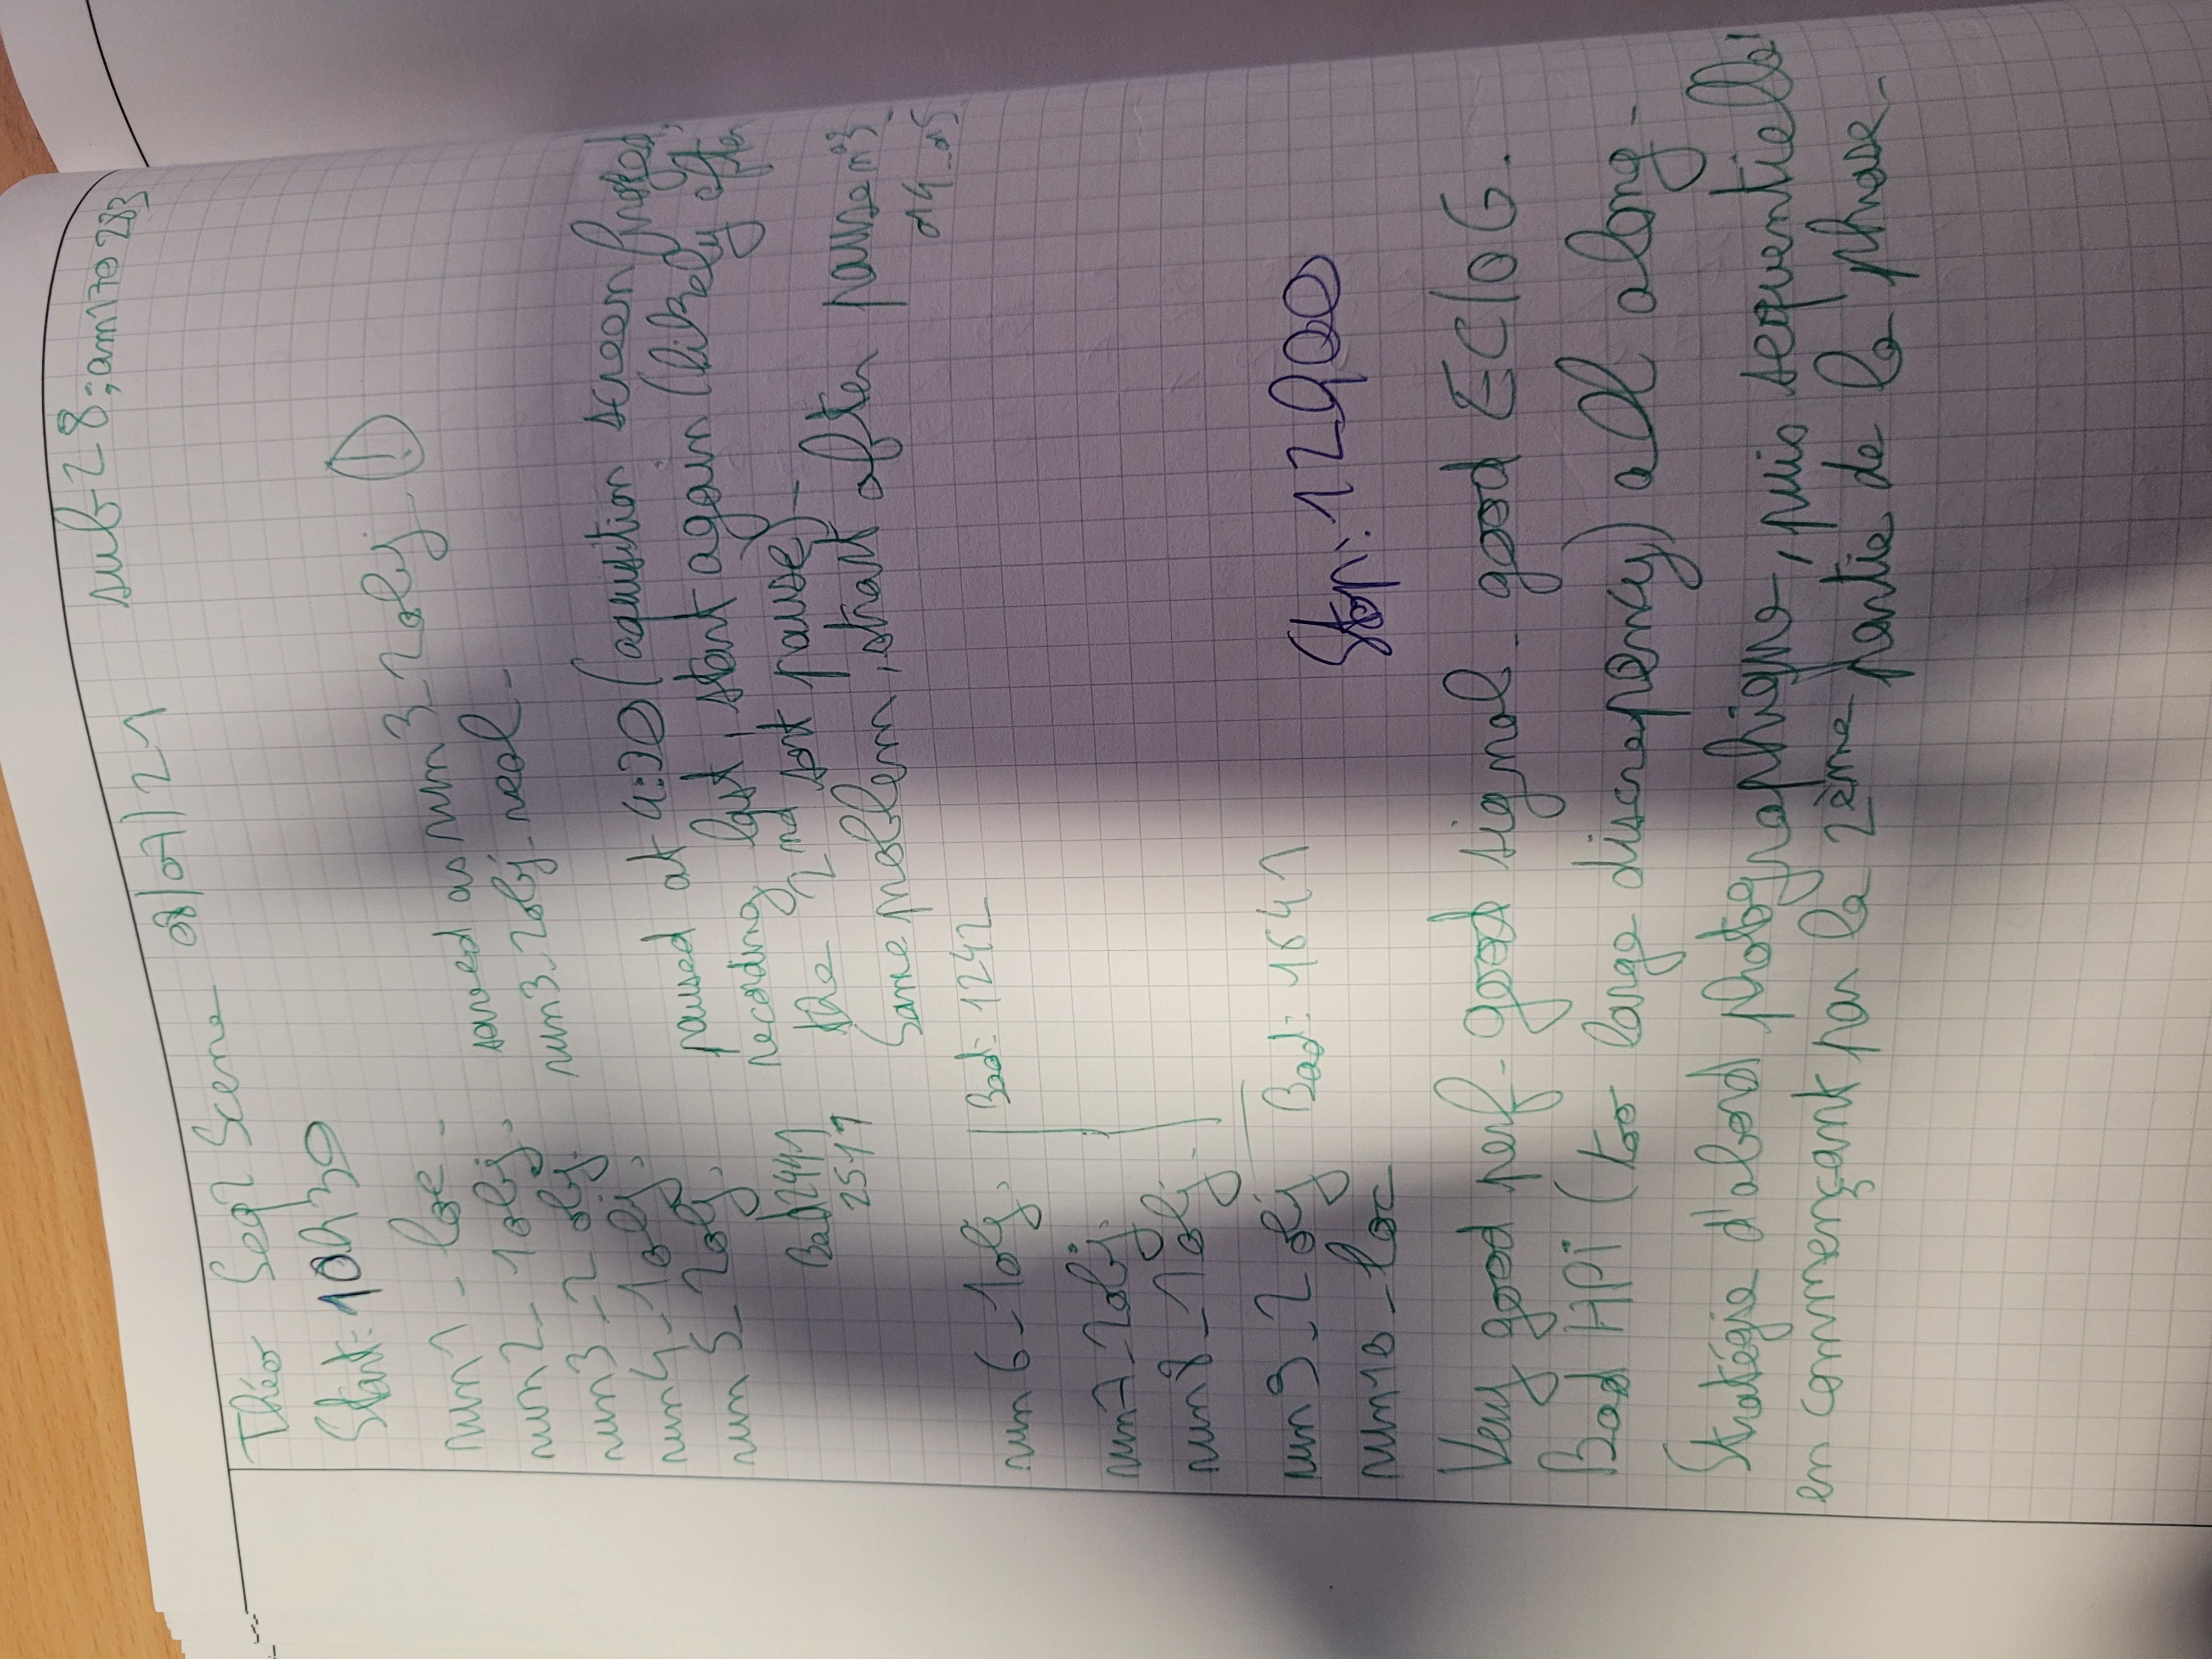 sub-28; am170283
Théo Seq2Scene 08/07/21
Start: 10h30
run1_loc -
run2_1obj. saved as run3_2obj. (!)
run3_2obj. run3_2obj_real -
run4_1obj.
run5_2obj. paused at 4:30 (aquisition screen
recording lost, start again (likely after
the 2nd pause) -
Bad 2441
2511
Same problem, start after pause n°3
o14_o15
run6_1obj. Bad: 1242
run7_2obj.
run8_1obj.
run9_2obj Bad: 1641
run10_loc
Stop: 12h00
Very good perf - good signal - good EC/OG.
Bad HPI (too large discrepency) all along -
Stratégie d'abord photographique, puis sequentielle
en commençant par la 2ème partie de la phrase -